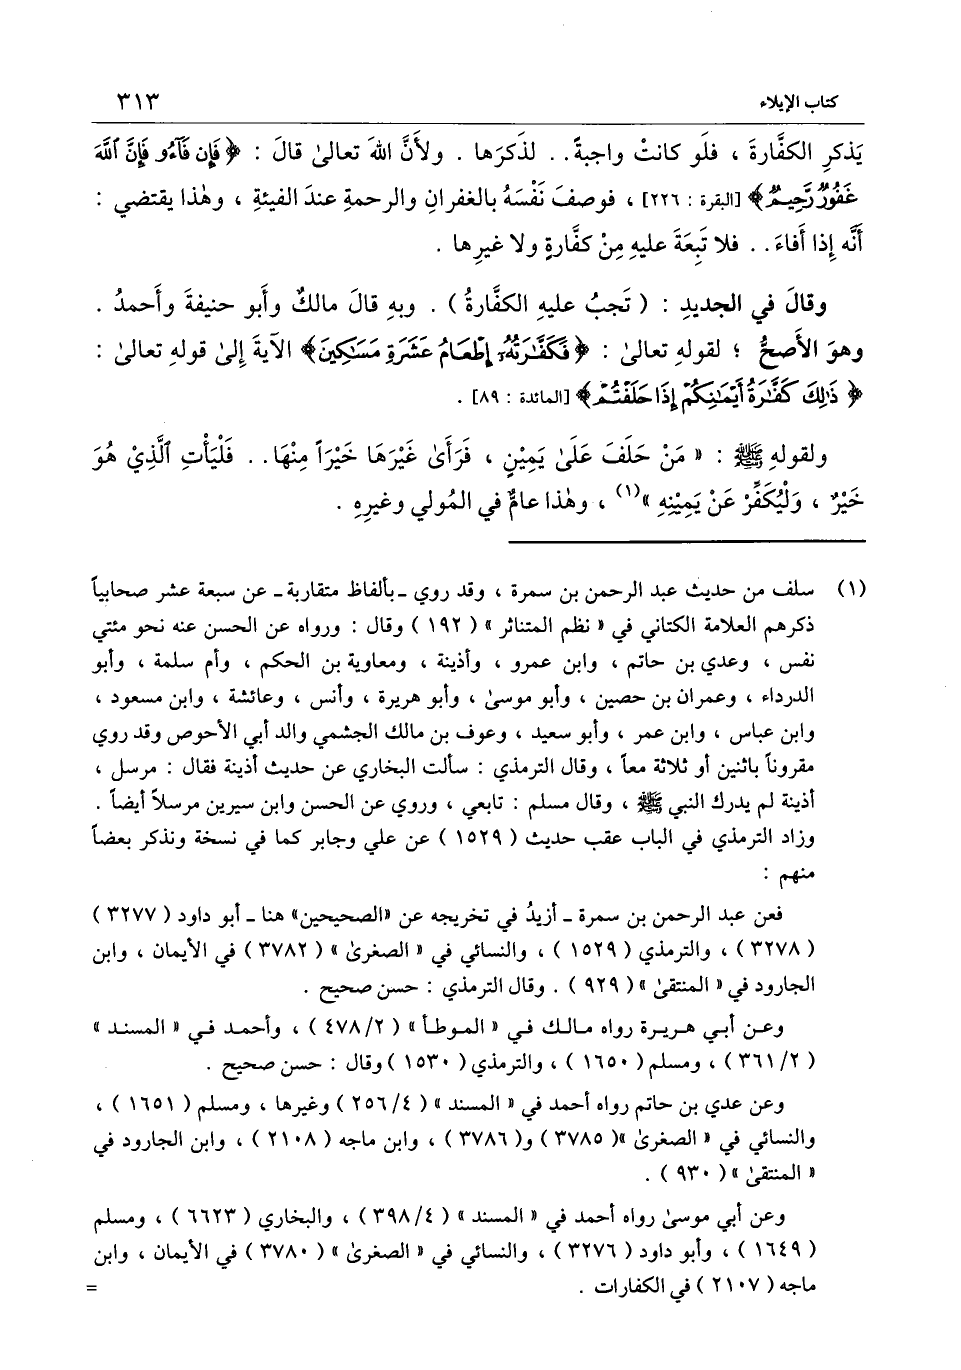 كتاب الإيلاء
٣١٣
يَذكرِ الكفَّارةَ ، فلَو كانتْ واجبةً . . لذكرَها . ولأَنَّ اللهَ تعالىٰ قالَ : ﴿ فَإِن فَآءُو فَإِنَّ ٱللَّهَ
غَفُورٌ رَّحِيمٌ ﴾ [البقرة : ٢٢٦] ، فوصفَ نَفْسَهُ بالغفرانِ والرحمةِ عندَ الفيئةِ ، وهٰذا يقتضي :
أَنَّه إِذا أَفاءَ . . فلا تَبِعَةَ عليهِ مِنْ كفَّارةٍ ولا غيرِها .
وقالَ في الجديدِ : ( تَجبُ عليهِ الكفَّارةُ ) . وبهِ قالَ مالكٌ وأَبو حنيفةَ وأَحمدُ .
وهوَ الأَصحُّ ؛ لقولهِ تعالىٰ : ﴿ فَكَفَّـٰرَتُهُۥٓ إِطْعَامُ عَشَرَةِ مَسَـٰكِينَ ﴾ الآيةَ إِلىٰ قولهِ تعالىٰ :
﴿ ذَٰلِكَ كَفَّـٰرَةُ أَيْمَـٰنِكُمْ إِذَا حَلَفْتُمْ ﴾ [المائدة : ٨٩] .
ولقولهِ ﷺ : « مَنْ حَلَفَ عَلَىٰ يَمِيْنٍ ، فَرَأَىٰ غَيْرَهَا خَيْرَاً مِنْهَا . . فَلْيَأْتِ ٱلَّذِيْ هُوَ
خَيْرٌ ، وَلْيُكَفِّرْ عَنْ يَمِيْنِهِ »(١) ، وهٰذا عامٌّ في المُولي وغيرِهِ .
(١) سلف من حديث عبد الرحمن بن سمرة ، وقد روي ـ بألفاظ متقاربة ـ عن سبعة عشر صحابياً
ذكرهم العلامة الكتاني في « نظم المتناثر » ( ١٩٢ ) وقال : ورواه عن الحسن عنه نحو مئتي
نفس ، وعدي بن حاتم ، وابن عمرو ، وأذينة ، ومعاوية بن الحكم ، وأم سلمة ، وأبو
الدرداء ، وعمران بن حصين ، وأبو موسىٰ ، وأبو هريرة ، وأنس ، وعائشة ، وابن مسعود ،
وابن عباس ، وابن عمر ، وأبو سعيد ، وعوف بن مالك الجشمي والد أبي الأحوص وقد روي
مقروناً باثنين أو ثلاثة معاً ، وقال الترمذي : سألت البخاري عن حديث أذينة فقال : مرسل ،
أذينة لم يدرك النبي ﷺ ، وقال مسلم : تابعي ، وروي عن الحسن وابن سيرين مرسلاً أيضاً .
وزاد الترمذي في الباب عقب حديث ( ١٥٢٩ ) عن علي وجابر كما في نسخة ونذكر بعضاً
منهم :
فعن عبد الرحمن بن سمرة ـ أزيدُ في تخريجه عن «الصحيحين» هنا ـ أبو داود ( ٣٢٧٧ )
( ٣٢٧٨ ) ، والترمذي ( ١٥٢٩ ) ، والنسائي في « الصغرىٰ » ( ٣٧٨٢ ) في الأيمان ، وابن
الجارود في « المنتقىٰ » ( ٩٢٩ ) . وقال الترمذي : حسن صحيح .
وعن أبي هريرة رواه مالك في « الموطأ » ( ٢/ ٤٧٨ ) ، وأحمد في « المسند »
( ٢/ ٣٦١ ) ، ومسلم ( ١٦٥٠ ) ، والترمذي ( ١٥٣٠ ) وقال : حسن صحيح .
وعن عدي بن حاتم رواه أحمد في « المسند » ( ٤/ ٢٥٦ ) وغيرها ، ومسلم ( ١٦٥١ ) ،
والنسائي في « الصغرىٰ » ( ٣٧٨٥ ) و( ٣٧٨٦ ) ، وابن ماجه ( ٢١٠٨ ) ، وابن الجارود في
« المنتقىٰ » ( ٩٣٠ ) .
وعن أبي موسىٰ رواه أحمد في « المسند » ( ٤/ ٣٩٨ ) ، والبخاري ( ٦٦٢٣ ) ، ومسلم
( ١٦٤٩ ) ، وأبو داود ( ٣٢٧٦ ) ، والنسائي في « الصغرىٰ » ( ٣٧٨٠ ) في الأيمان ، وابن
ماجه ( ٢١٠٧ ) في الكفارات . =